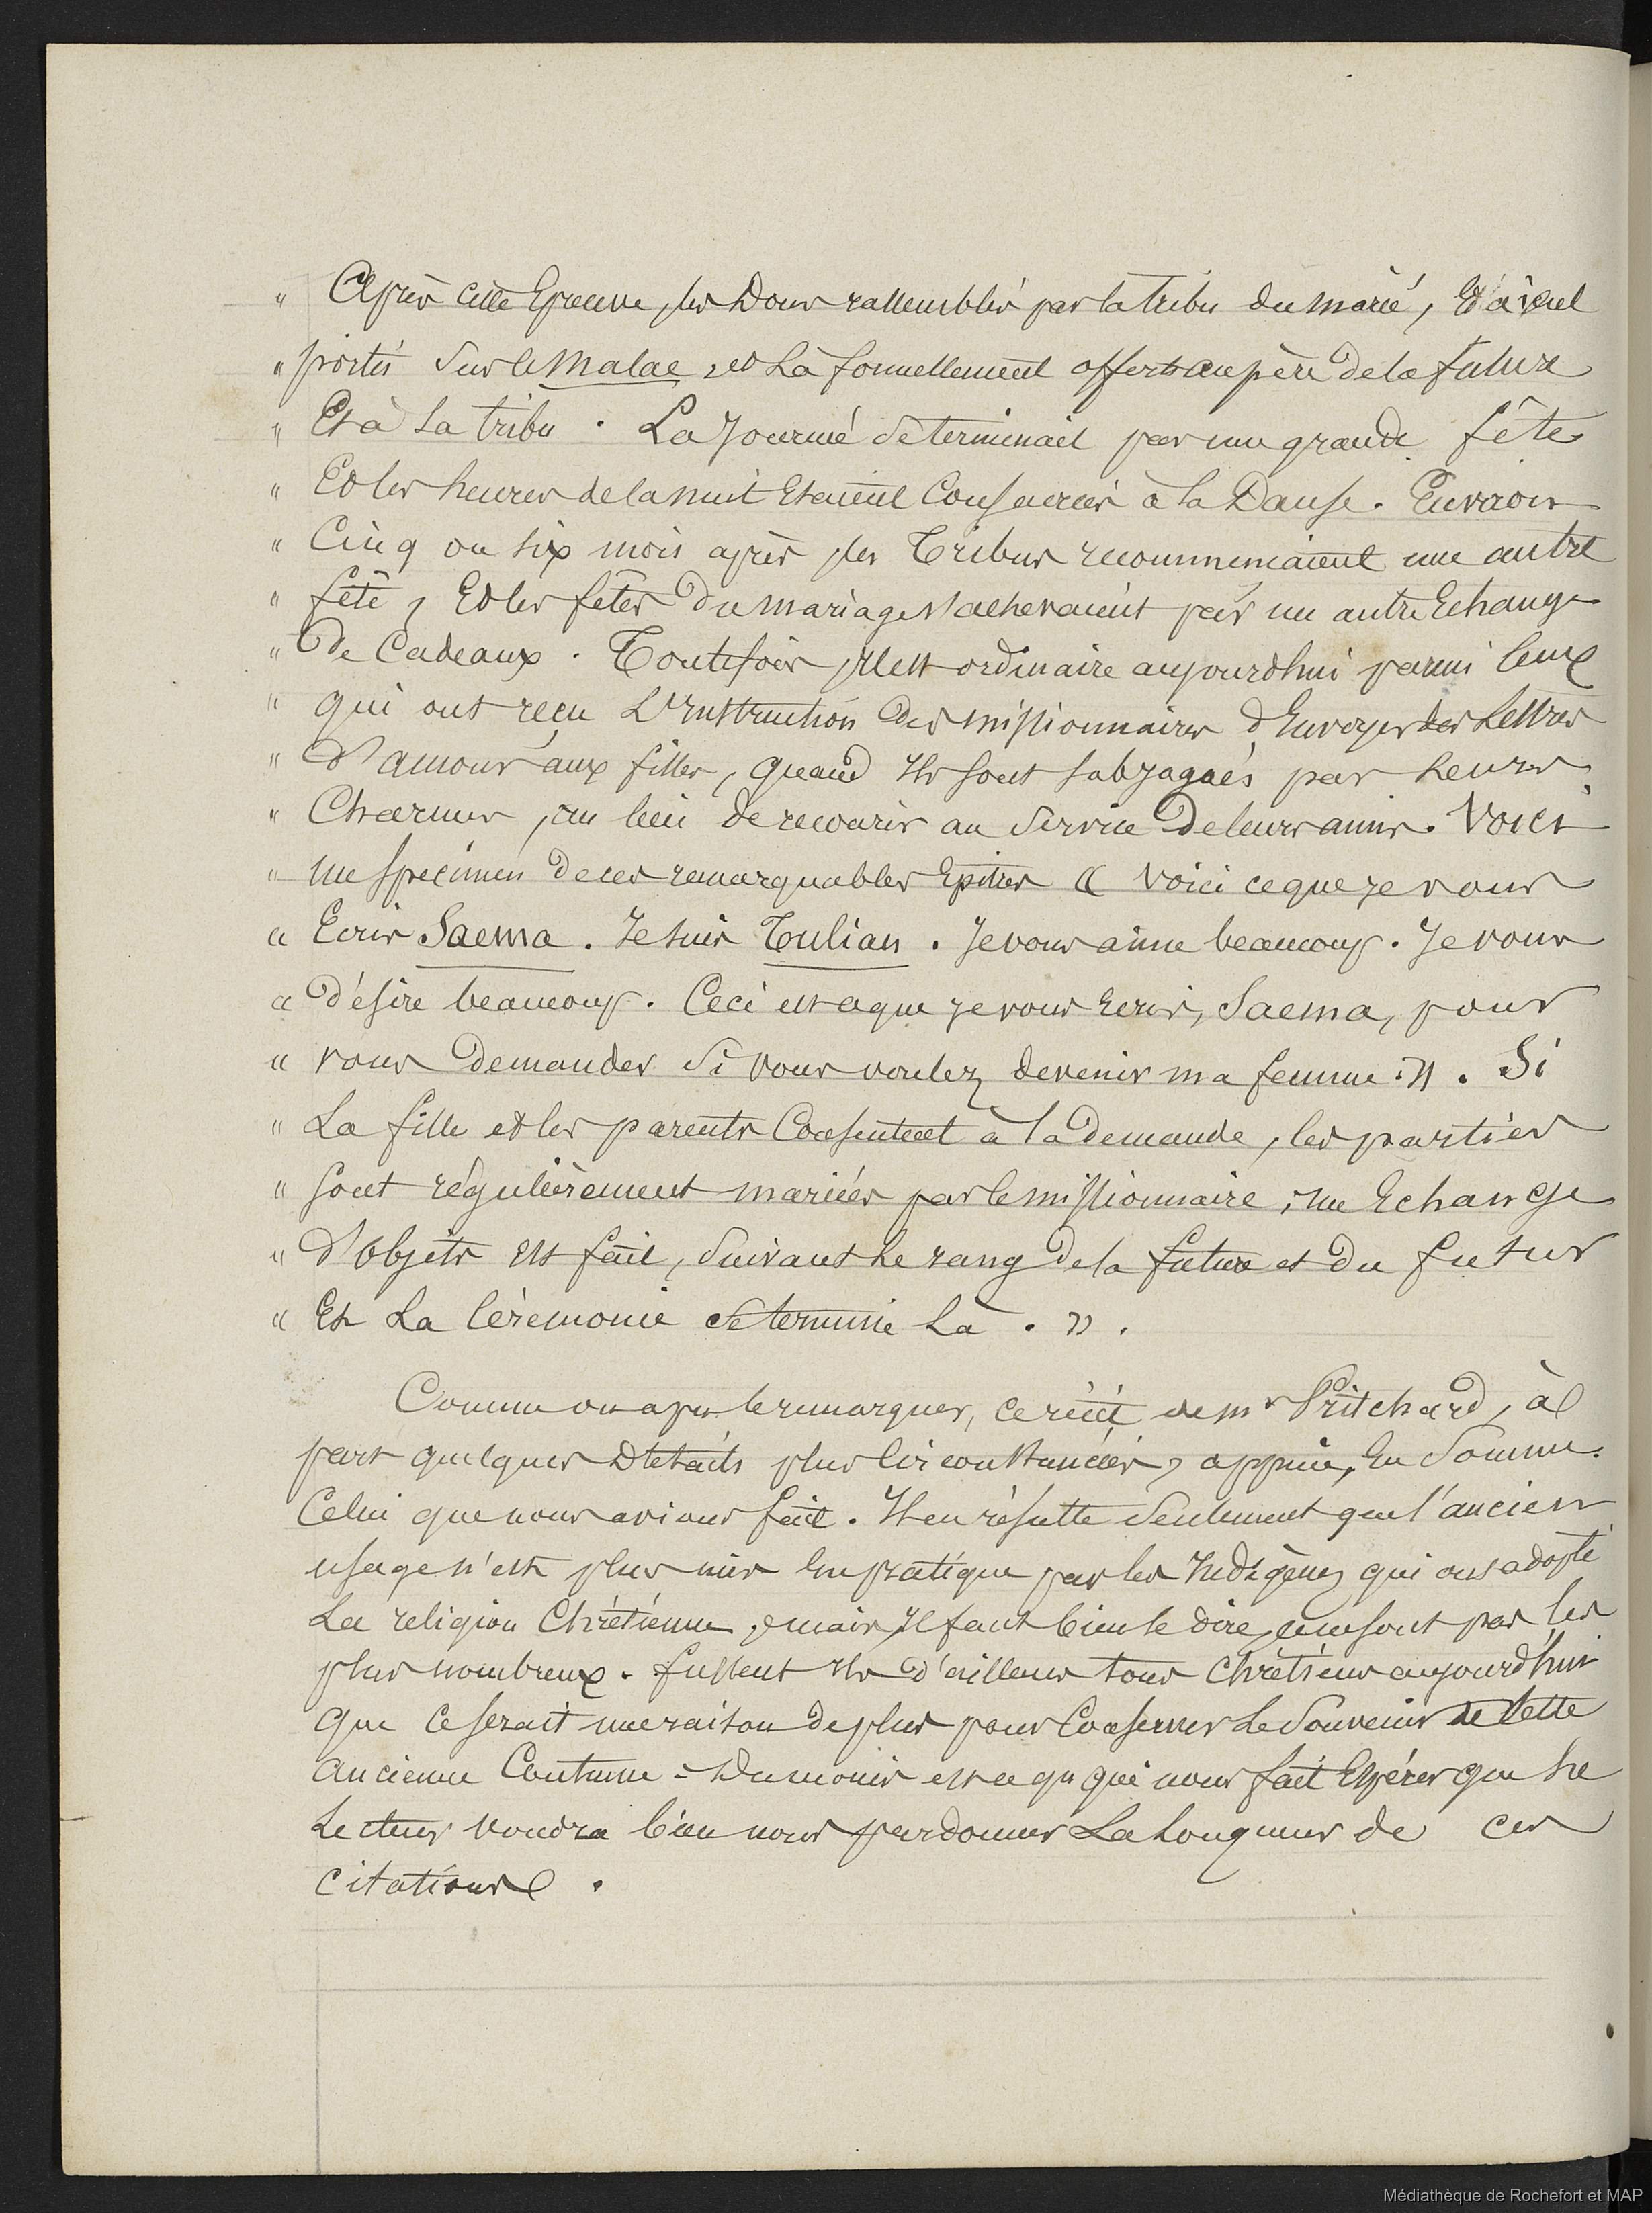 " Après cette Epreuve, les Dons rassemblés par la tribu du marié, Etaient
" portés sur le Malae, et Là formellement offerts au père de la future
" Et à sa tribu. La Journée se terminait par une grande fête
" Et les heures de la nuit Etaient Consacrées à la Danse. Environ
" Cinq ou six mois après, les Tribus recommençaient une autre
" fête, Et les fêtes du mariage s'achevaient par un autre Echange
" De Cadeaux. Toutefois, Il est ordinaire aujourdhui parmi Ceux
" qui ont reçu L'Instruction des missionnaires d'Envoyer des Lettres
" D'amour aux filles, quand Ils sont subjugués par Leurs
" Charmes, au lieu de recourir au Service De leurs amis. Voici
" un specimen de ces remarquables Epitres « Voici ce que je vous
« Ecris Saema. Je suis Tulian. Je vous aime beaucoup. Je vous
« Désire beaucoup. Ceci est ce que je vous Ecris, Saema, pour
« vous Demander Si vous voulez devenir ma femme ». Si
" La fille et les parents Consentent à la Demande, les parties
" sont régulièrement mariées par le missionnaire, un Echange
" D'Objets Est fait, Suivant Le rang De la future et Du futur
« Et La Cérémonie se termine Là. ».
Comme on a pu le remarquer, ce récit de Mr Pritchard, à
part quelques Détails plus Circonstanciés, appuie, En Somme
Celui que nous avions fait. Il en résulte Seulement que l'ancien
usage n'est plus mis En pratique par les Indigènes qui ont adopté
La religion Chrétienne, mais, Il faut bien le dire, ce ne sont pas les
plus nombreux. fussent Ils D'ailleurs tous Chrétiens aujourd'hui
que Ce serait une raison De plus pour Conserver Le Souvenir de Cette
ancienne Coutume - Du moins est ce qu qui nous fait Espérer que Le
Lecteur voudra bien nous pardonner La Longueur de ces
citations.
Médiathèque de Rochefort et MAP